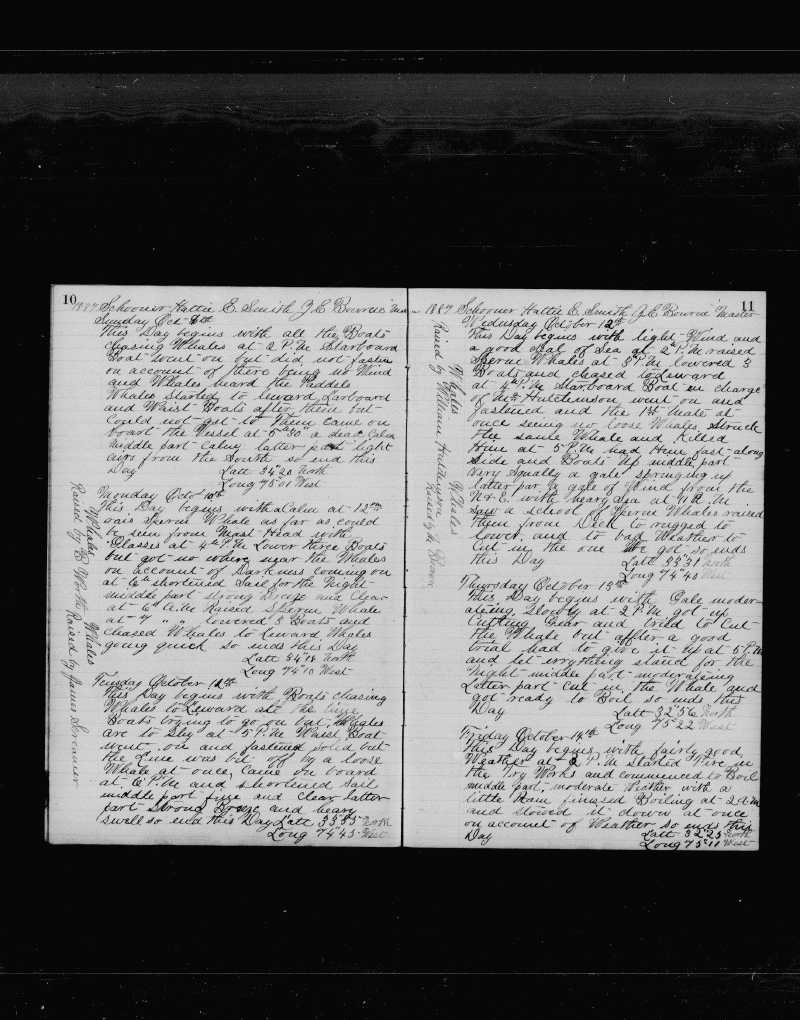 10
1887 Schooner Hattie E. Smith J. C. Bourne Mas
Sunday Oct 9th
This Day begins with all the Boats
chasing Whales at 2 P.M Starboard
Boat went on but did not fasten
on account of there being no Wind
and Whales heard the Paddels
Whales started to leward Larboard
and Waist Boats after them but
could not get to them came on
board the Vessel at 5h30m a dead Calm
Middle part Calm latter part light
airs from the South so end this
Day Latt 34°20 North
Long 75°01 West
Monday Octo 10th
This Day begins with a Calm at 12
Sperm Whale as far as could
be seen from Mast Head with
Glasses at 4h P.M Lower three Boats
but got no where near the Whales
on account of Darkness coming on
at 6h shortened Sail for the Night
middle part strong Breeze and Clear
at 6h A.M Raised Sperm Whale
at 7 " " lowered 3 Boats and
chased Whales to Leward Whales
going quick so ends this Day
Latt 34°18 North
Long 74°10 West
Whales
Raised by E Worth
Whales
Raised by James
Tuesday October 11th
This Day begins with Boats chasing
Whales to Leward all the time
Boats trying to go on but Whales
are to Shy at 5 P.M Waist Boat
went on and fastened solid but
the Line was bit off by a loose
Whale at once, Came on board
at 6 P.M and shortened Sail
middle part fine and clear latter
part Strong Breeze and heavy
swell so end this Day Latt 33°55 North
Long 74°45 West
11
1887 Schooner Hattie E. Smith J. C. Bourne Master
Wednsday October 12th
This Day begins with light Wind and
a good deal of Sea at 2 P.M raised
Sperm Whales at 3 P.M lowered 3
Boats and chased to Leward
at 4h P.M Starboard Boat in charge
of Mr Hutchinson went on and
fastened and the 1st Mate at
once seing no loose Whales, Struck
the same Whale and Killed
Him at 5 P.M had Him fast along
side and Boats Up middle part
very Squally a gale springing up
latter part a gale of Wind from the
N & E. with heavy Sea at
Saw a school of Sperm Whales raised
them from Deck to rugged to
lower, and to bad Weather to
Cut in the one We got, so ends
this Day Latt 33°31 North
Long 74°40 West
Whales
Raised by William Hutchinson
Whales
Raised by
Thursday October 13th
This Day begins with Gale moder-
ateing Slowly at 2 P.M got up
Cutting Gear and tried to Cut
the Whale but affter a good
trial had to give it up at 5 P.M
and let errything stand for the
Night middle part moderateing
Latter part Cut in the Whale and
got ready to Boil so ends this
Day Latt 32°56 North
Long 75°22 West
Friday October 14th
This Day begins with fairly good
Weather at 2 P.M Started Fire in
the Try Works and commenced to Boil
middle part, moderate Weather with a
little Rain finised Boiling at 2 A.M
and Stowed it down at once
on account of Weather so ends this
Day Latt 32°25 North
Long 75°11 West